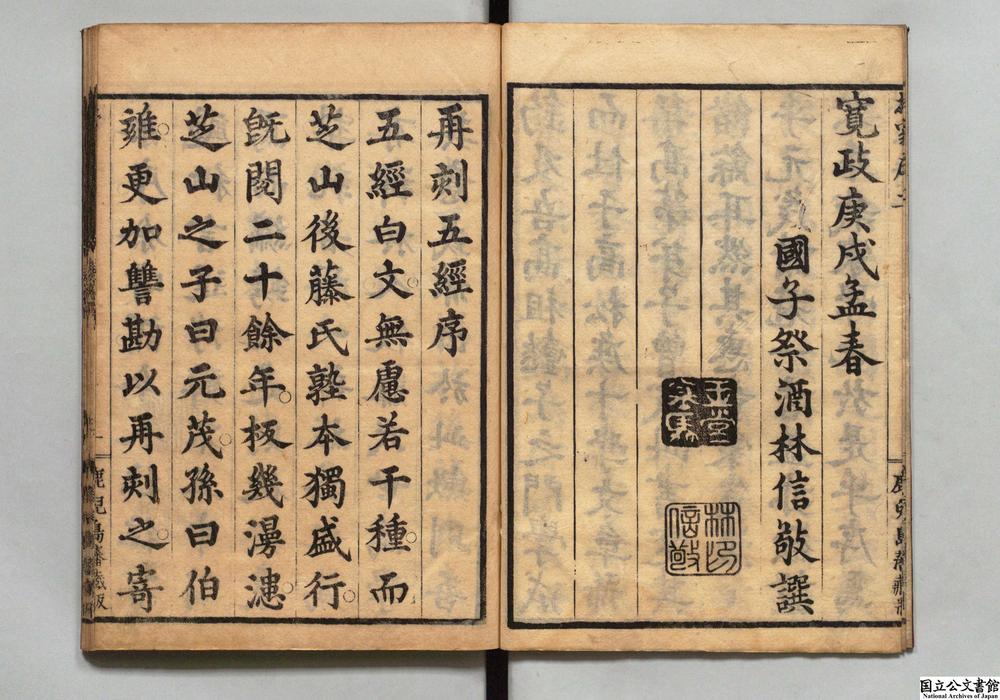 寛政庚戌孟春
國子祭酒林信敬譔
玉堂
金馬
林印
信敬
再刻五經序
五經白文。無慮若干種。而
芝山後藤氏塾本獨盛行。
既閱二十餘年。板幾漫漶。
芝山之子曰元茂。孫曰伯
雝。更加讐勘以再刻之。寄
鹿兒島藩藏板
国立公文書館
National Archives of Japan